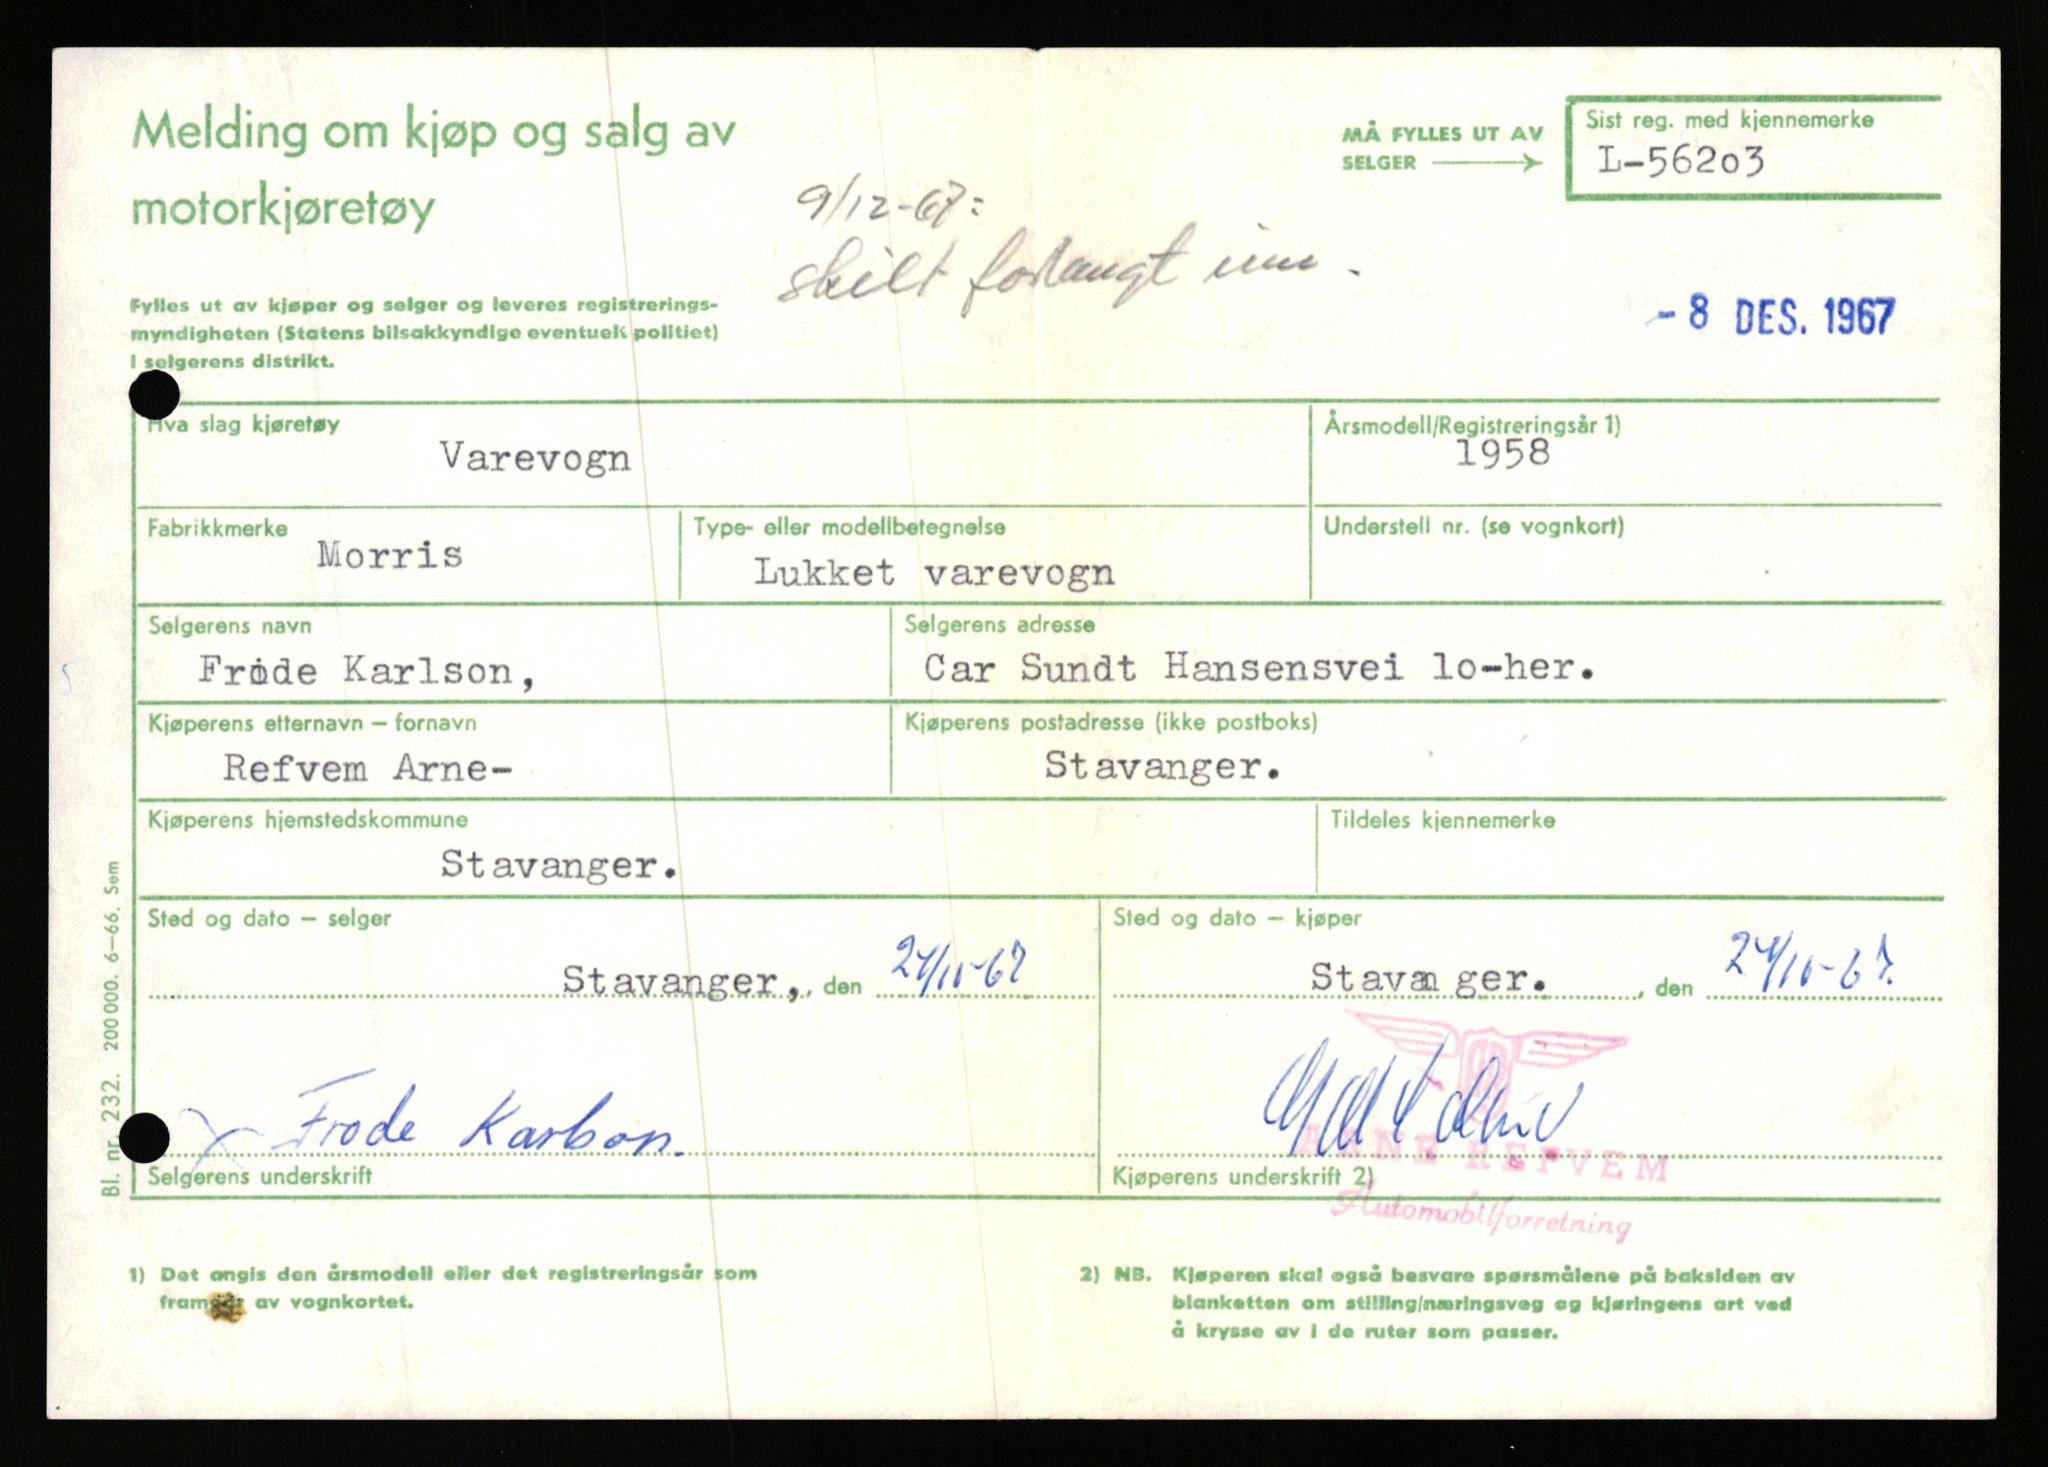 Melding om kjøp og salg av
motorkjøretøy
MÅ FYLLES UT AV
SELGER
Sist reg. med kjennemerke
L-56203
9/12-67:
skilt forlangt inn.
Fylles ut av kjøper og selger og leveres registrerings-
myndigheten (Statens bilsakkyndige eventuelt politiet)
i selgerens distrikt.
- 8 DES. 1967
Hva slag kjøretøy
Varevogn
Årsmodell/Registreringsår 1)
1958
Fabrikkmerke
Morris
Type- eller modellbetegnelse
Lukket varevogn
Understell nr. (se vognkort)
Selgerens navn
Frode Karlson,
Selgerens adresse
Car Sundt Hansensvei lo-her.
Kjøperens etternavn – fornavn
Refvem Arne-
Kjøperens postadresse (ikke postboks)
Stavanger.
Kjøperens hjemstedskommune
Stavanger.
Tildeles kjennemerke
Sted og dato – selger
Stavanger, , den 24/11-67
Sted og dato – kjøper
Stavan ger. , den 24/11-67.
Frode Karlson.
Selgerens underskrift
ARNE REFVEM
Kjøperens underskrift 2)
Automobilforretning
1) Det angis den årsmodell eller det registreringsår som
framgår av vognkortet.
2) NB. Kjøperen skal også besvare spørsmålene på baksiden av
blanketten om stilling/næringsveg og kjøringens art ved
å krysse av i de ruter som passer.
Bl. nr. 232. 200 000. 6–66. Sem